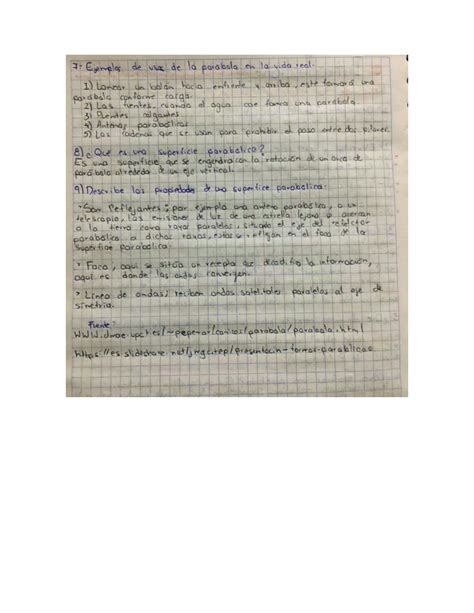 7.- Ejemplos de usos de la parábola en la vida real.
1) Lanzar un balón hacia enfrente y arriba, este formará una
parábola conforme caiga.
2) Las fuentes, cuando el agua cae forma una parábola
3) Puentes colgantes
4) Antenas parabólicas
5) Las cadenas que se usan para prohibir el paso entre dos pilares.
8) ¿Que es una superficie parabolica?
Es una superficie que se engendra con la rotación de un arco de
parábola alrededor de un eje vertical.
9) Describe las propiedades de una superficie parabolica.
Son Reflejantes; por ejemplo una antena parabólica, o un
telescopio, las emisiones de luz de una estrella lejana se acercan
a la tierra como rayos paralelos, situado el eje del reflector
parabólico a dichos rayos, estos se reflejan en el foco de la
superficie parabolica.
Foco, aqui se sitúa un receptor que decodifica la información,
aquí es donde las ondas convergen.
Linea de ondas; reciben ondas satelitales paralelas al eje de
simetria.
Fuente:
WWW.dmae.upct.es/~pepemar/conicas/parabola/parabola.html
https://es.slideshare.net/